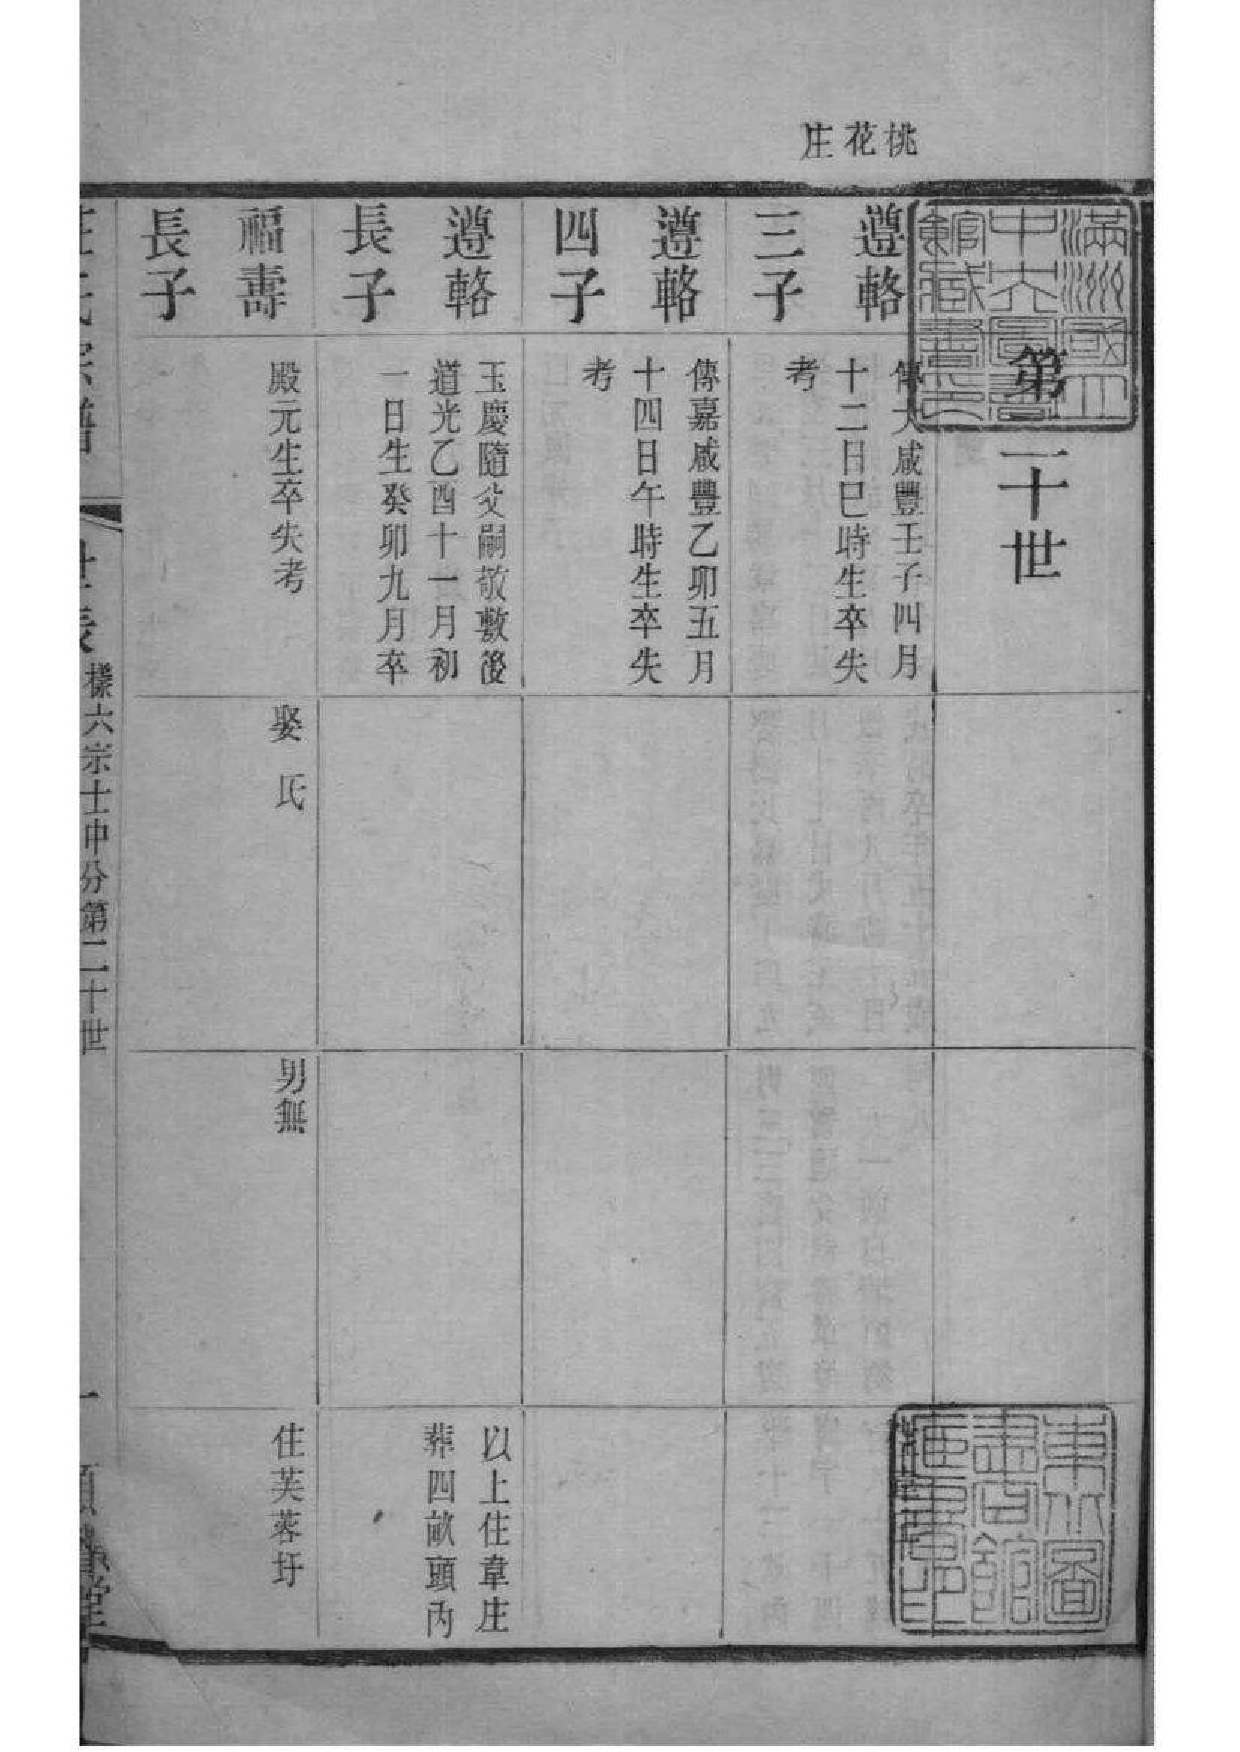 桃花庄
滿洲國立
中央圖書
館藏書
第二十世
遵輅
三子
傳大咸豐壬子四月
十二日巳時生卒失
考
遵輅
四子
傳嘉咸豐乙卯五月
十四日午時生卒失
考
遵輅
長子
玉慶隨父嗣敬敷後
道光乙酉十一月初
一日生癸卯九月卒
以上住韋庄
葬四畝頭內
福壽
長子
殿元生卒失考
娶 氏
男無
住芙蓉圩
氏宗譜
世表
樣六宗士中分第二十世
一